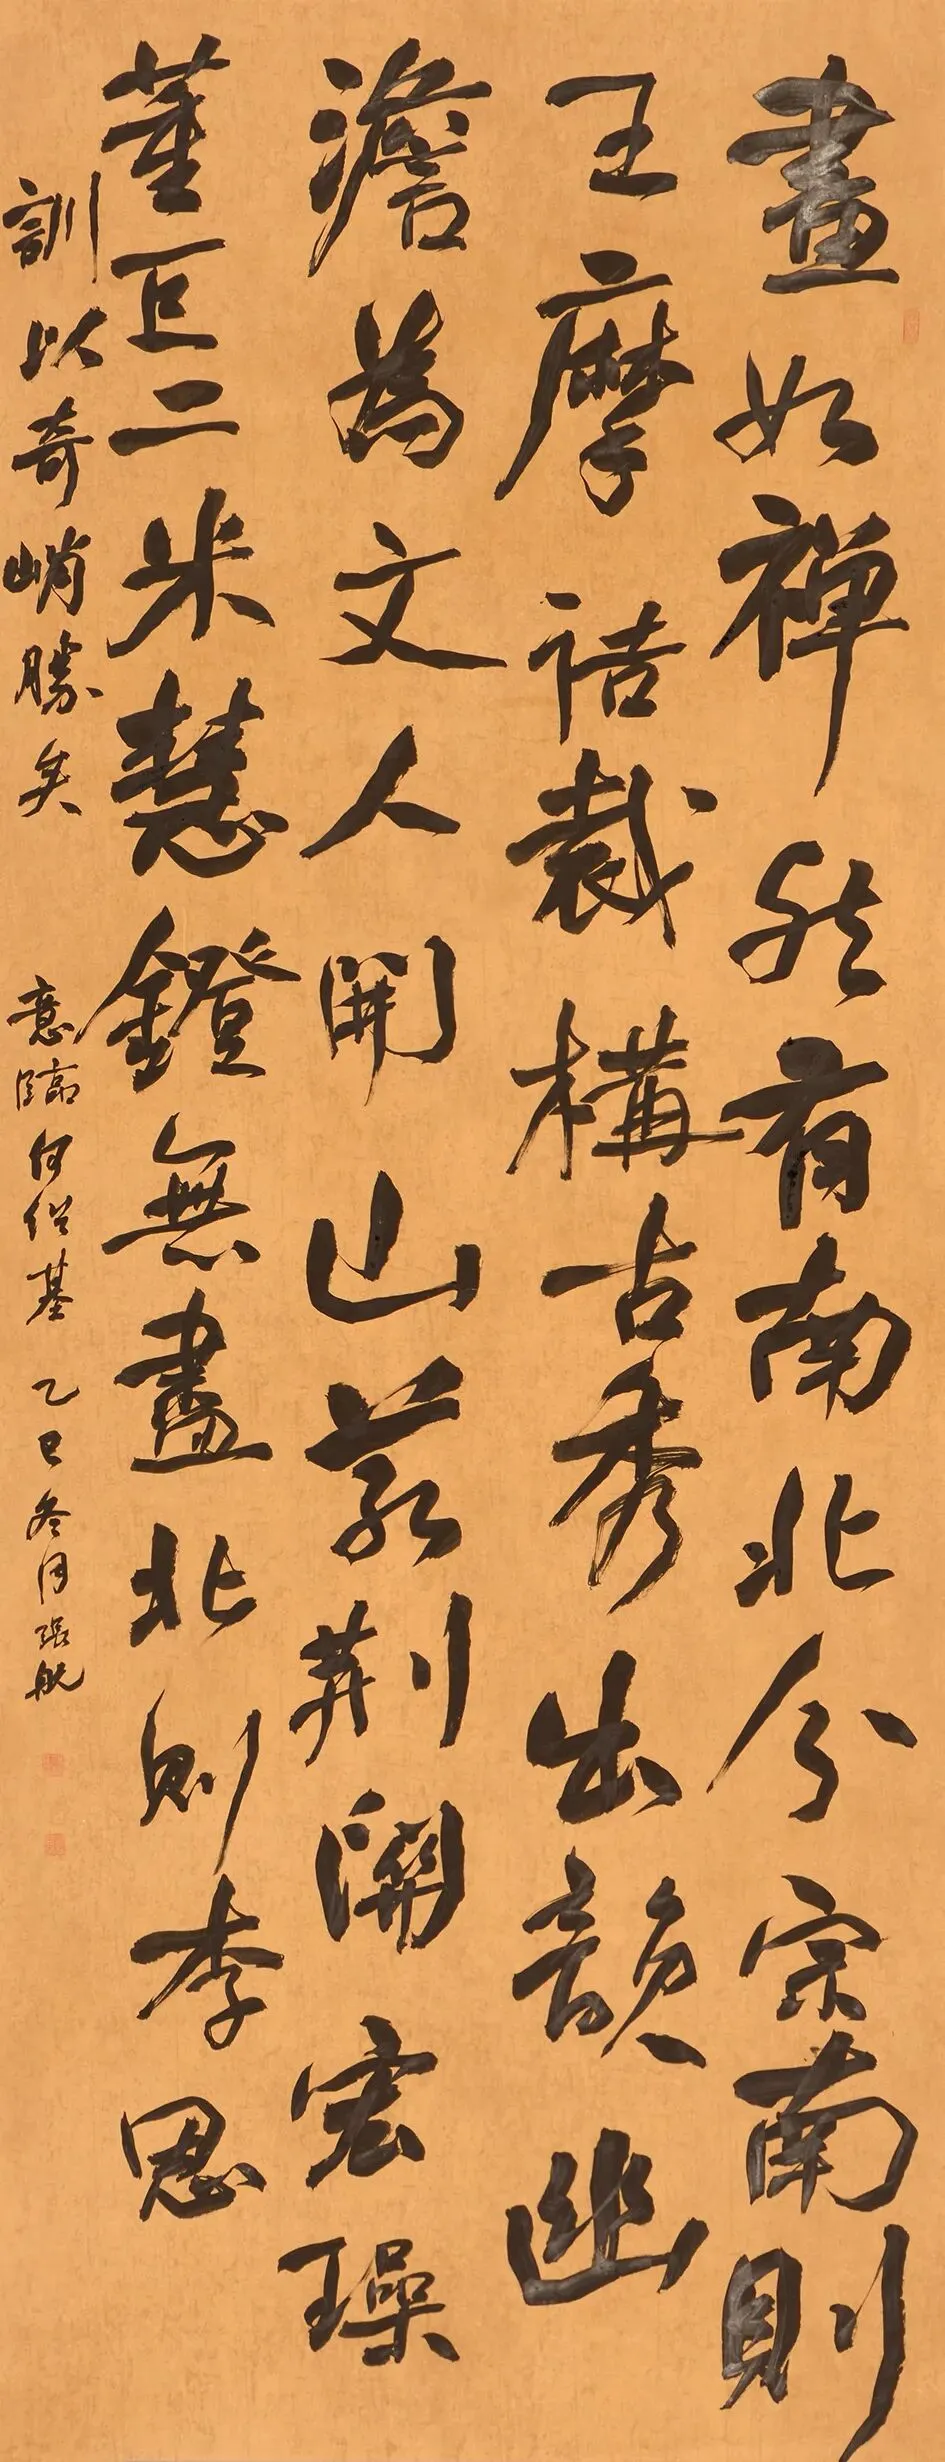 畫如禪然有南北分宗南則
王摩詰裁構古秀出韻幽
澹為文人開山若荆關宏璪
董巨二米慧鐙無盡北則李思
訓以奇峭勝矣 意臨何紹基 乙巳冬月張航